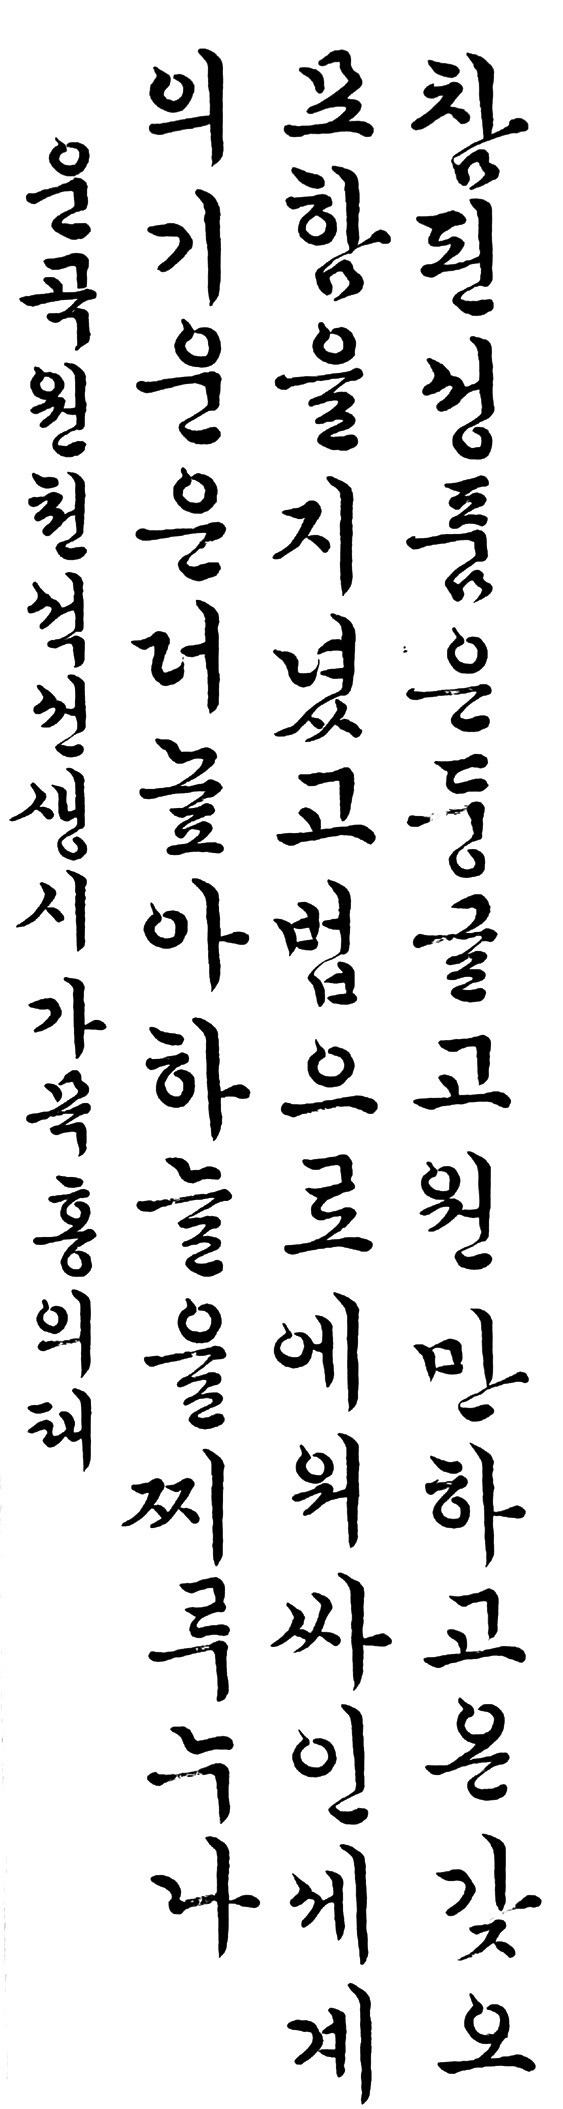 참된성품은둥글고원만하고온갖오
묘함을지녔고법으로에워싸인세계
의기운은더높아하늘을찌루누나
운곡원천석선생시가묵홍의태